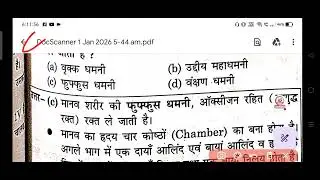 6:11:56
DocScanner 1 Jan 2026 5-44 am.pdf
जाती है ?
(a) वृक्क धमनी (b) उद्दीय महाधमनी
(c) फुफ्फुस धमनी (d) वंक्षण धमनी
(c) मानव शरीर की फुफ्फुस धमनी, ऑक्सीजन रहित
रक्त) रक्त ले जाती है।
• मानव का हृदय चार कोष्ठों (Chamber) का बना होता
अगले भाग में एक दायाँ आलिंद एवं बायाँ आलिंद व
निलय होते हैं